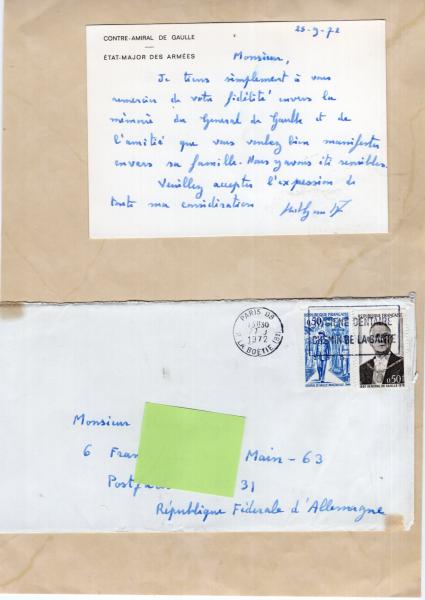 CONTRE-AMIRAL DE GAULLE
ÉTAT-MAJOR DES ARMÉES
25-9-72
Monsieur,
Je tiens simplement à vous
remercier de votre fidélité envers la
mémoire du Général de Gaulle et de
l'amitié que vous voulez bien manifester
envers sa famille. Nous y avons été sensibles.
Veuillez accepter l'expression de
toute ma considération
PARIS 08
1972
R. LA BOETIE (8E)
HYGIENE DENTAIRE
CHEMIN DE LA SANTE
REPUBLIQUE FRANÇAISE
0,50
REPUBLIQUE FRANÇAISE
0,50
Monsieur
6 Fran Main - 63
Post 31
République Fédérale d'Allemagne